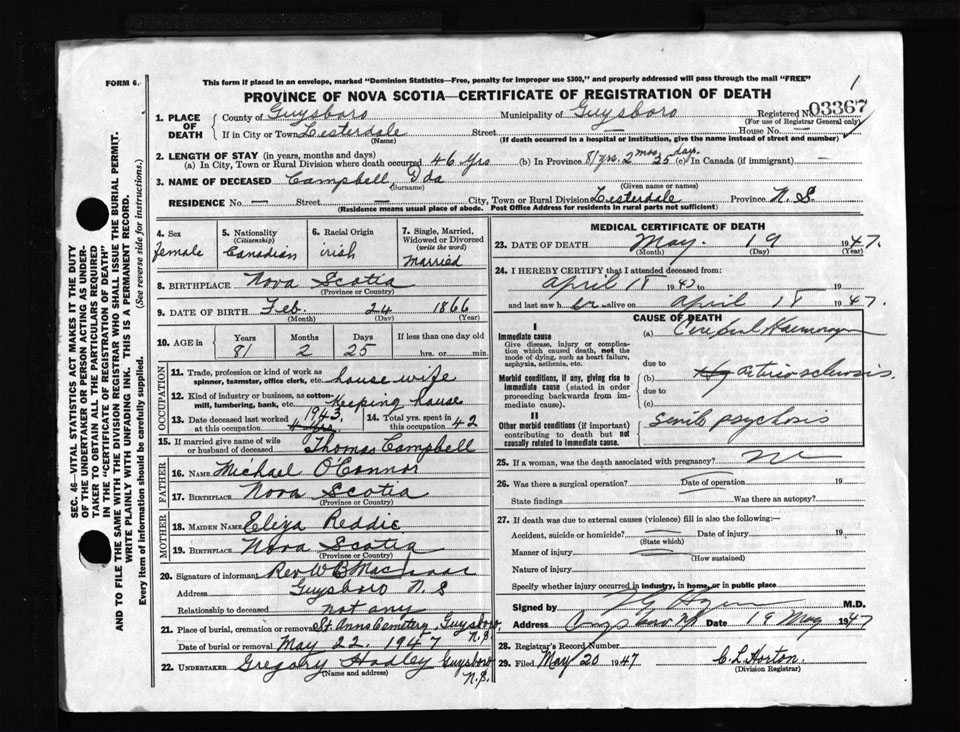 FORM 6.
This form if placed in an envelope, marked "Dominion Statistics—Free, penalty for improper use $300," and properly addressed will pass through the mail "FREE"
1
PROVINCE OF NOVA SCOTIA—CERTIFICATE OF REGISTRATION OF DEATH
1. PLACE OF DEATH
County of Guysboro Municipality of Guysboro Registered No. 03367
(For use of Registrar General only)
If in City or Town Lesterdale Street — House No. —
(Name) (If death occurred in a hospital or institution, give the name instead of street and number)
2. LENGTH OF STAY (in years, months and days)
(a) In City, Town or Rural Division where death occurred 46 yrs (b) In Province 81 yrs. 2 mos 25 days. (c) In Canada (if immigrant) —
3. NAME OF DECEASED Campbell, Ida
(Surname) (Given name or names)
RESIDENCE No. — Street — City, Town or Rural Division Lesterdale Province N.S.
(Residence means usual place of abode. Post Office Address for residents in rural parts not sufficient)
4. Sex
Female
5. Nationality
(Citizenship)
Canadian
6. Racial Origin
irish
7. Single, Married, Widowed or Divorced
(write the word)
Married
8. BIRTHPLACE Nova Scotia
(Province or Country)
9. DATE OF BIRTH Feb. 24 1866
(Month) (Day) (Year)
10. AGE in
Years Months Days If less than one day old
81 2 25 hrs. or min.
OCCUPATION
11. Trade, profession or kind of work as spinner, teamster, office clerk, etc. house wife
12. Kind of industry or business, as cotton-mill, lumbering, bank, etc. Keeping house
13. Date deceased last worked at this occupation 1943.
14. Total yrs. spent in this occupation 42
15. If married give name of wife or husband of deceased Thomas Campbell
FATHER
16. NAME Michael O'Connor
17. BIRTHPLACE Nova Scotia
(Province or Country)
MOTHER
18. MAIDEN NAME Eliza Reddie
19. BIRTHPLACE Nova Scotia
(Province or Country)
20. Signature of informant Rev. W B MacIsaac
Address Guysboro N.S
Relationship to deceased not any
21. Place of burial, cremation or removal St. Anns Cemetery, Guysboro N.S.
Date of burial or removal May 22, 1947
22. UNDERTAKER Gregory Hadley Guysboro N.S.
(Name and address)
MEDICAL CERTIFICATE OF DEATH
23. DATE OF DEATH May. 19 1947.
(Month) (Day) (Year)
24. I HEREBY CERTIFY that I attended deceased from:
April 18 19 to 19
and last saw h er alive on April 18 1947.
CAUSE OF DEATH
I
Immediate cause
Give disease, injury or complication which caused death, not the mode of dying, such as heart failure, asphyxia, asthenia, etc.
(a) Cerebral Haemorage
due to
Morbid conditions, if any, giving rise to immediate cause (stated in order proceeding backwards from immediate cause).
(b) arteriosclerosis.
due to
(c)
II
Other morbid conditions (if important) contributing to death but not causally related to immediate cause.
Senile psychosis
25. If a woman, was the death associated with pregnancy? no
26. Was there a surgical operation? Date of operation 19
State findings Was there an autopsy?
27. If death was due to external causes (violence) fill in also the following:—
Accident, suicide or homicide? Date of injury 19
(State which)
Manner of injury
(How sustained)
Nature of injury
Specify whether injury occurred in industry, in home, or in public place
Signed by M.D.
Address Guysboro N.S. Date 19 May 1947
28. Registrar's Record Number
29. Filed May 20 1947 C. L. Horton.
(Division Registrar)
SEC. 46—VITAL STATISTICS ACT MAKES IT THE DUTY
OF THE UNDERTAKER OR PERSON ACTING AS UNDER-
TAKER TO OBTAIN ALL THE PARTICULARS REQUIRED
IN THE "CERTIFICATE OF REGISTRATION OF DEATH"
AND TO FILE THE SAME WITH THE DIVISION REGISTRAR WHO SHALL ISSUE THE BURIAL PERMIT.
WRITE PLAINLY WITH UNFADING INK. THIS IS A PERMANENT RECORD.
Every item of information should be carefully supplied. (See reverse side for instructions.)